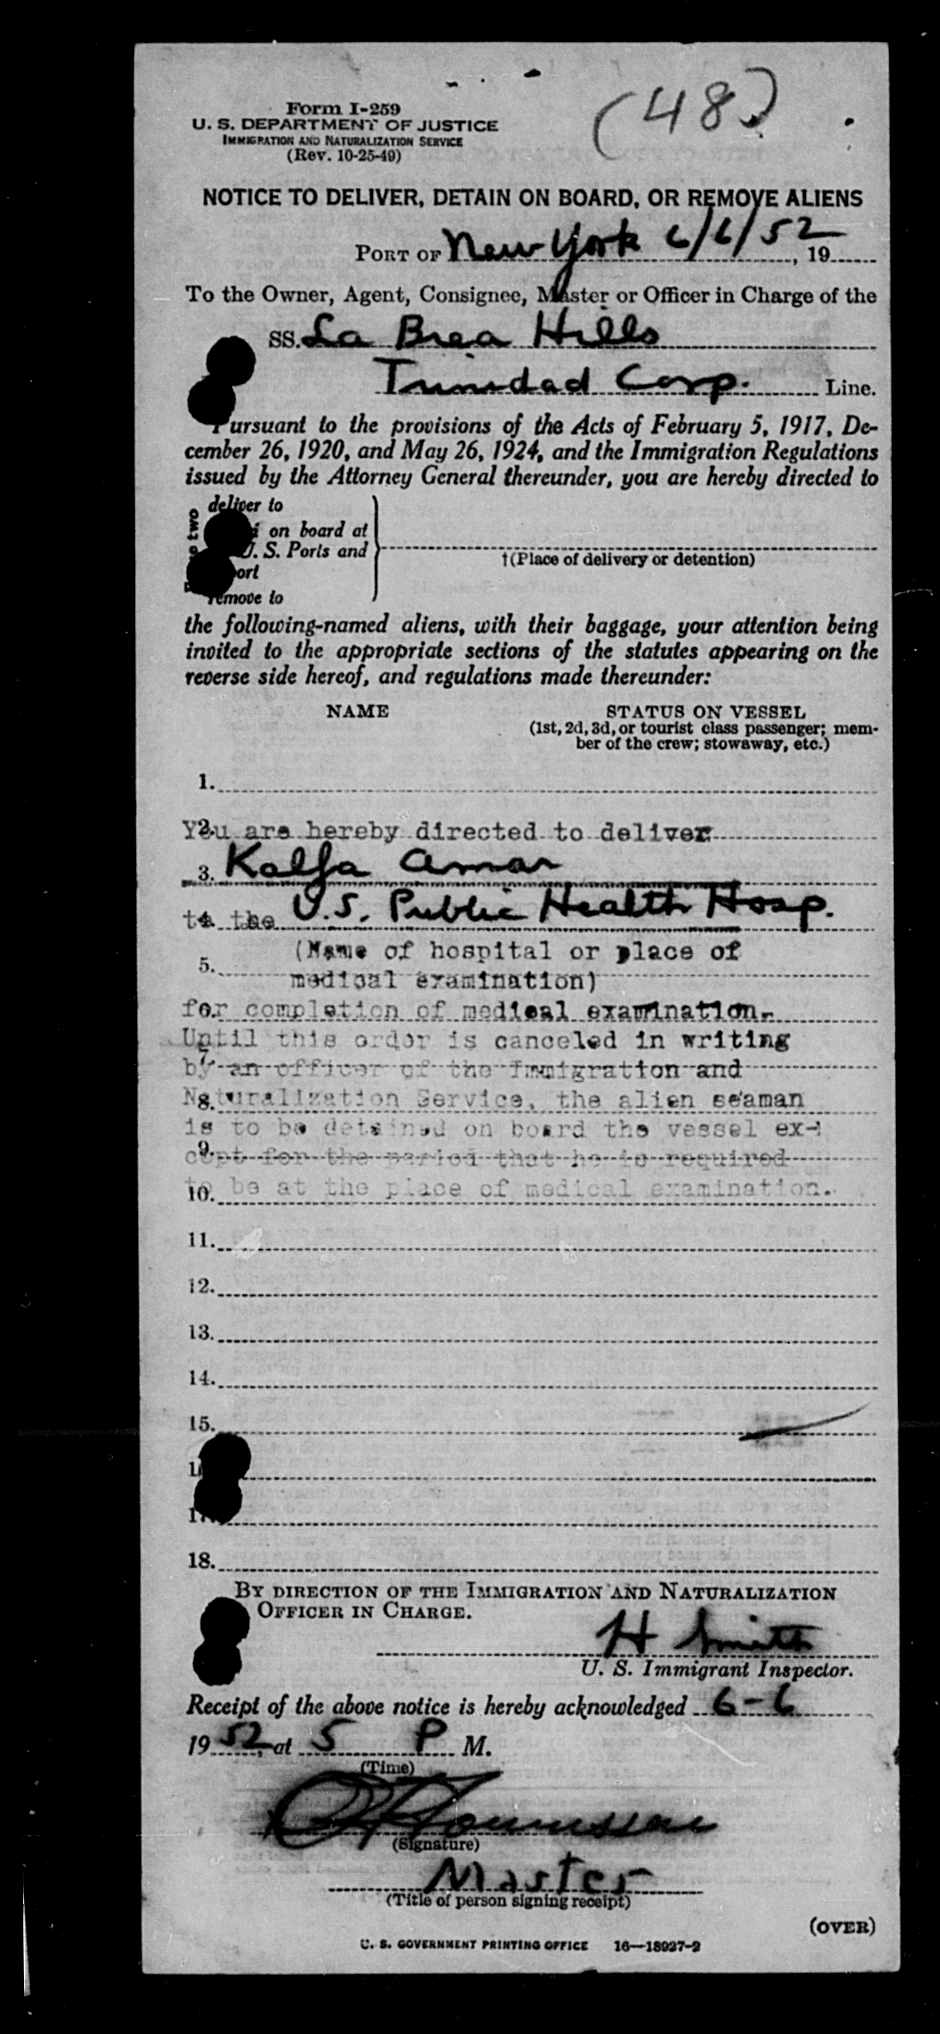 (48)
Form I-259
U. S. DEPARTMENT OF JUSTICE
IMMIGRATION AND NATURALIZATION SERVICE
(Rev. 10-25-49)
NOTICE TO DELIVER, DETAIN ON BOARD, OR REMOVE ALIENS
PORT OF New York 6/6/52, 19
To the Owner, Agent, Consignee, Master or Officer in Charge of the
SS. La Brea Hills
Trinidad Corp. Line.
Pursuant to the provisions of the Acts of February 5, 1917, De-
cember 26, 1920, and May 26, 1924, and the Immigration Regulations
issued by the Attorney General thereunder, you are hereby directed to
deliver to
on board at
U. S. Ports and
two
†(Place of delivery or detention)
remove to
the following-named aliens, with their baggage, your attention being
invited to the appropriate sections of the statutes appearing on the
reverse side hereof, and regulations made thereunder:
NAME STATUS ON VESSEL
(1st, 2d, 3d, or tourist class passenger; mem-
ber of the crew; stowaway, etc.)
1.
2. You are hereby directed to deliver
3. Kalfa Amar
4. to the U.S. Public Health Hosp.
(Name of hospital or place of
5. medical examination)
6. for completion of medical examination.
Until this order is canceled in writing
7. by an officer of the Immigration and
8. Naturalization Service, the alien seaman
is to be detained on board the vessel ex-
9. cept for the period that he is required
10. to be at the place of medical examination.
11.
12.
13.
14.
15.
17.
18.
BY DIRECTION OF THE IMMIGRATION AND NATURALIZATION
OFFICER IN CHARGE.
H Smith
U. S. Immigrant Inspector.
Receipt of the above notice is hereby acknowledged 6-6
19 52, at 5 P M.
(Time)
(Signature)
Master
(Title of person signing receipt)
(OVER)
U. S. GOVERNMENT PRINTING OFFICE 16—18927-2